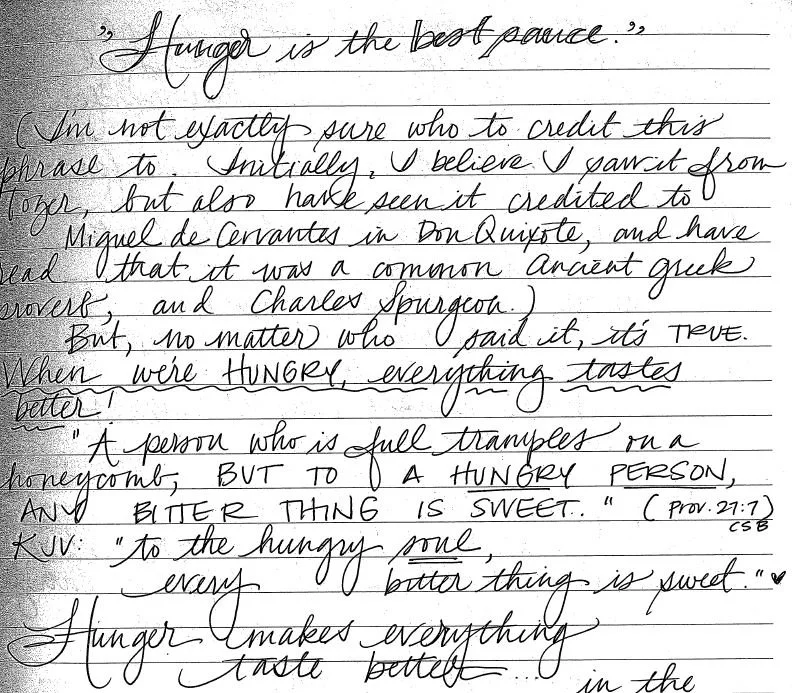 "Hunger is the best sauce."
(I'm not exactly sure who to credit this
phrase to. Initially, I believe I saw it from
Tozer, but also have seen it credited to
Miguel de Cervantes in Don Quixote, and have
read that it was a common Ancient Greek
proverb, and Charles Spurgeon.)
But, no matter who said it, it's TRUE.
When we're HUNGRY, everything tastes
better!
"A person who is full tramples on a
honeycomb, BUT TO A HUNGRY PERSON,
ANY BITTER THING IS SWEET." (Prov. 27:7)
CSB
KJV: "to the hungry soul,
every bitter thing is sweet." ♥
Hunger makes everything
taste better... in the